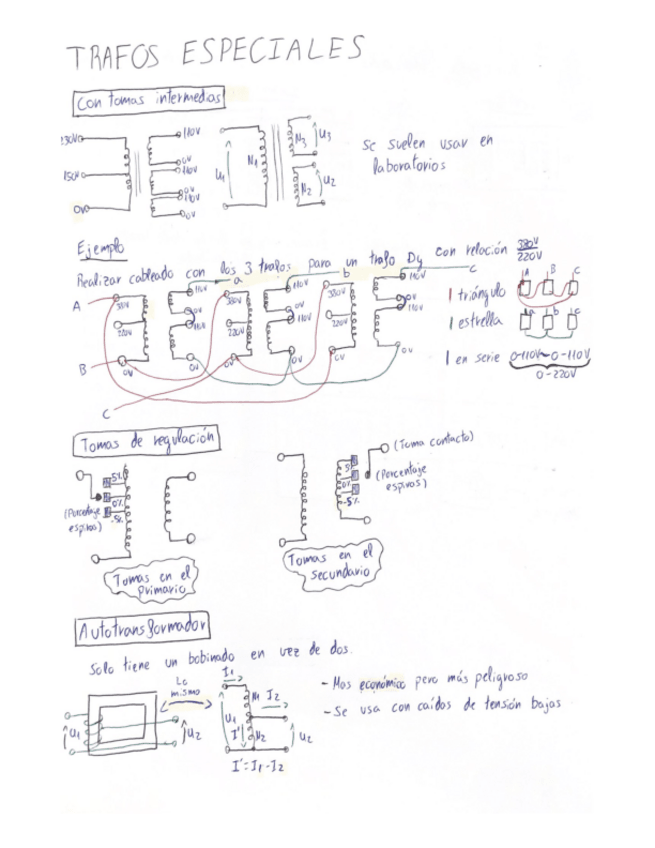 TRAFOS ESPECIALES
Con tomas intermedias
230V
150V
0V
110V
0V
110V
0V
110V
0V
U1
N1
N3
U3
N2
U2
Se suelen usar en
laboratorios
Ejemplo
Realizar cableado con los 3 trafos para un trafo Dy con relación 380V
220V
A
B
C
a
b
c
110V
0V
110V
0V
220V
0V
380V
110V
0V
110V
0V
220V
0V
380V
110V
0V
110V
0V
220V
0V
1 triángulo
A B C
1 estrella
a b c
1 en serie 0-110V~0-110V
0-220V
Tomas de regulación
5%
0%
-5%
(Porcentaje
espiras)
Tomas en el
primario
5%
0%
-5%
(Toma contacto)
(Porcentaje
espiras)
Tomas en el
secundario
Autotransformador
Solo tiene un bobinado en vez de dos.
Lo
mismo
U1
U2
I1
N1
I2
U1
I'
N2
U2
I'=I1-I2
- Mas económico pero más peligroso
- Se usa con caídas de tensión bajas